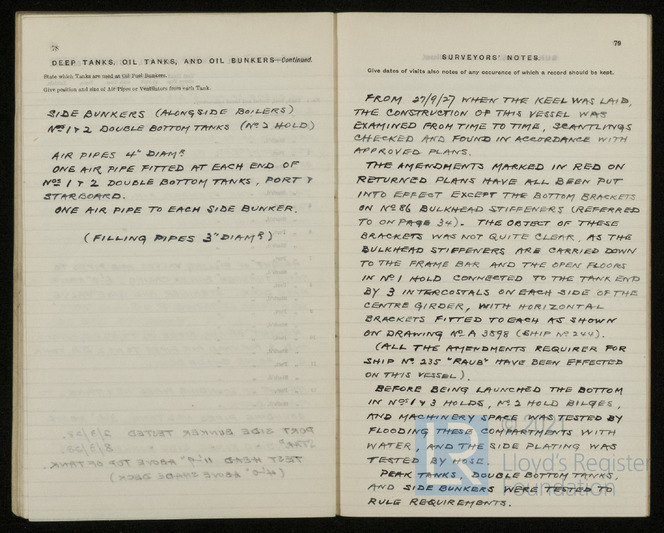 78
DEEP TANKS, OIL TANKS, AND OIL BUNKERS—Continued.
State which Tanks are used as Oil Fuel Bunkers.
Give position and size of Air Pipes or Ventilators from each Tank.
SIDE BUNKERS (ALONGSIDE BOILERS)
Nos 1 & 2 DOUBLE BOTTOM TANKS (No 2 HOLD)
AIR PIPES 4" DIAMR
ONE AIR PIPE FITTED AT EACH END OF
Nos 1 & 2 DOUBLE BOTTOM TANKS, PORT &
STARBOARD.
ONE AIR PIPE TO EACH SIDE BUNKER.
(FILLING PIPES 3" DIAMR)
79
SURVEYORS' NOTES.
Give dates of visits also notes of any occurence of which a record should be kept.
FROM 27/9/27 WHEN THE KEEL WAS LAID,
THE CONSTRUCTION OF THIS VESSEL WAS
EXAMINED FROM TIME TO TIME, SCANTLINGS
CHECKED AND FOUND IN ACCORDANCE WITH
APPROVED PLANS.
THE AMENDMENTS MARKED IN RED ON
RETURNED PLANS HAVE ALL BEEN PUT
INTO EFFECT EXCEPT THE BOTTOM BRACKETS
ON No 86 BULKHEAD STIFFENERS (REFERRED
TO ON PAGE 34). THE OBJECT OF THESE
BRACKETS WAS NOT QUITE CLEAR, AS THE
BULKHEAD STIFFENERS ARE CARRIED DOWN
TO THE FRAME BAR AND THE OPEN FLOORS
IN No 1 HOLD CONNECTED TO THE TANK END
BY 3 INTERCOSTALS ON EACH SIDE OF THE
CENTRE GIRDER, WITH HORIZONTAL
BRACKETS FITTED TO EACH AS SHOWN
ON DRAWING No A 3898 (SHIP No 244).
(ALL THE AMENDMENTS REQUIRER FOR
SHIP No 235 "RAUB" HAVE BEEN EFFECTED
ON THIS VESSEL).
BEFORE BEING LAUNCHED THE BOTTOM
IN Nos 1 & 3 HOLDS, No 2 HOLD BILGES,
AND MACHINERY SPACE WAS TESTED BY
FLOODING THESE COMPARTMENTS WITH
WATER, AND THE SIDE PLATING WAS
TESTED BY HOSE.
PEAK TANKS, DOUBLE BOTTOM TANKS,
AND SIDE BUNKERS WERE TESTED TO
RULE REQUIREMENTS.
© 2021
Lloyd's Register
Foundation